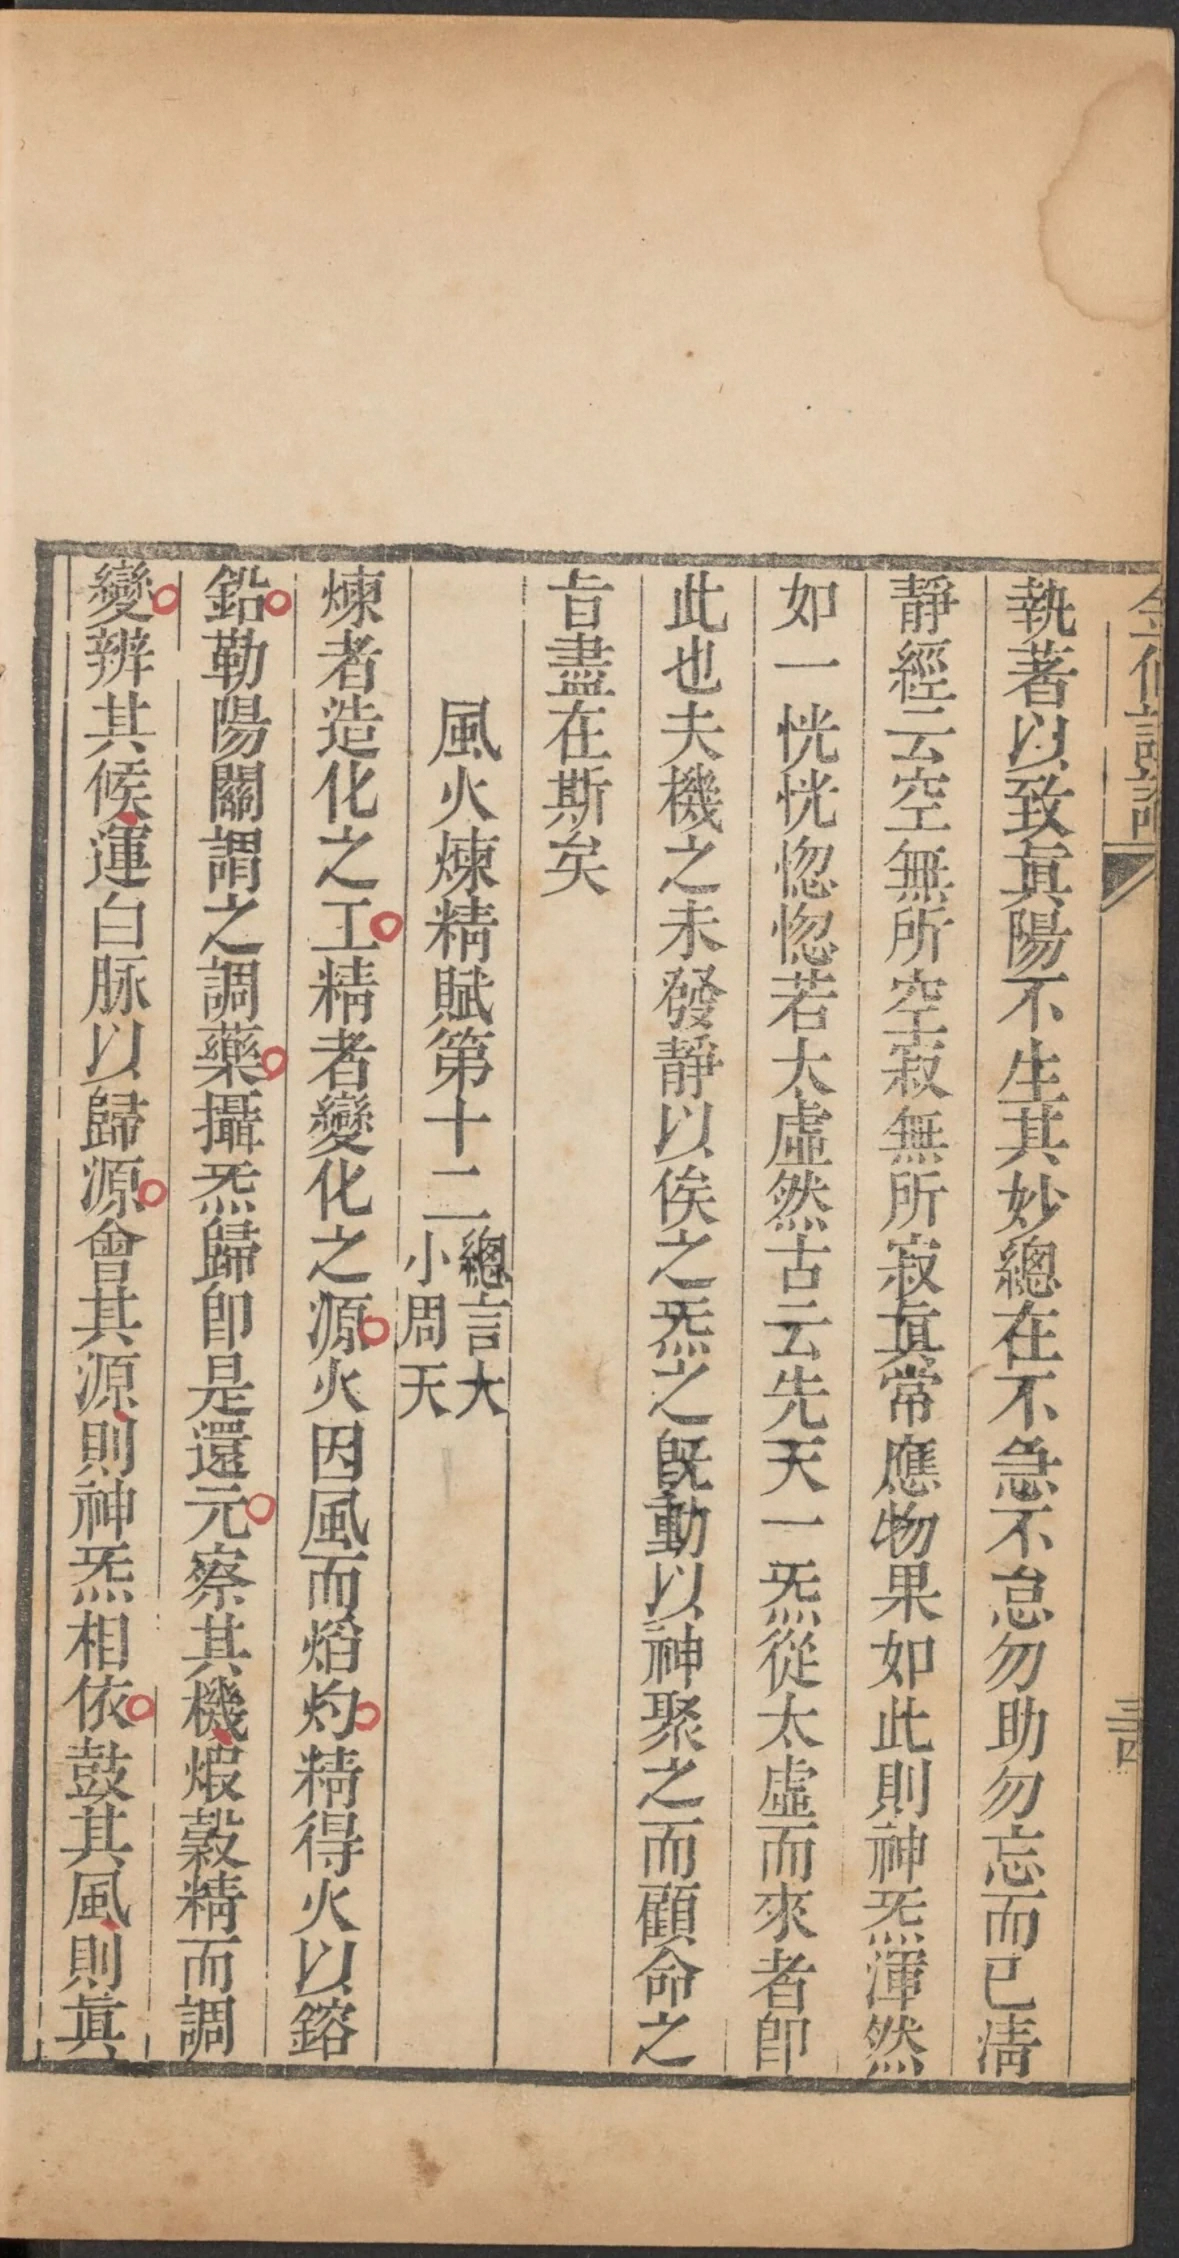 執著以致真陽不生其妙總在不急不怠勿助勿忘而已清
靜經云空無所空寂無所寂真常應物果如此則神炁渾然
如一恍恍惚惚若太虛然古云先天一炁從太虛而來者即
此也夫機之未發靜以俟之炁之既動以神聚之而顧命之
旨盡在斯矣
風火煉精賦第十二總言大小周天
煉者造化之工精者變化之源火因風而焰灼精得火以鎔
鉛勒陽關謂之調藥攝炁歸即是還元察其機煆穀精而調
變辨其候運白脉以歸源會其源則神炁相依鼓其風則真
金仙證論
三四